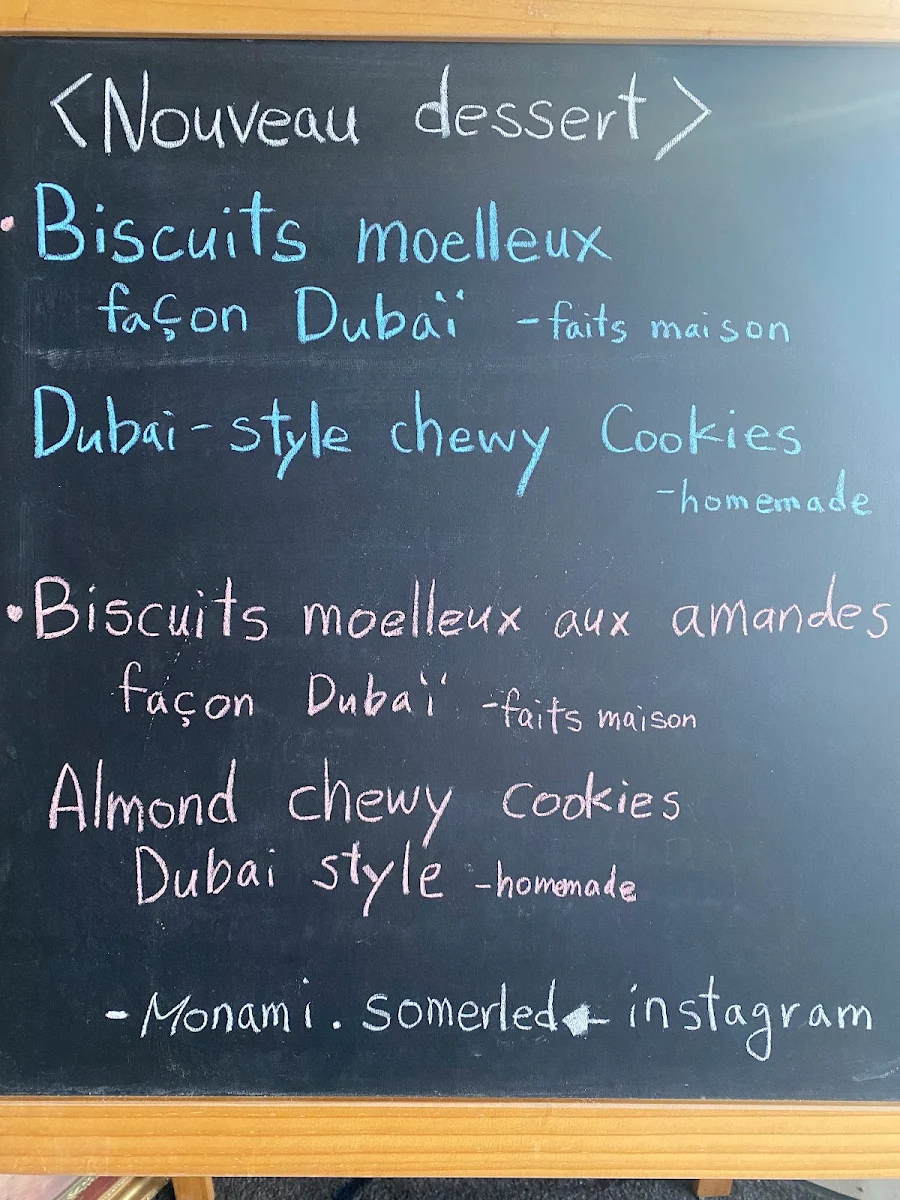 <Nouveau dessert>
• Biscuits moelleux
façon Dubaï - faits maison
Dubai-style chewy Cookies
- homemade
• Biscuits moelleux aux amandes
façon Dubaï - faits maison
Almond chewy Cookies
Dubai style - homemade
- Monami.somerled ← instagram